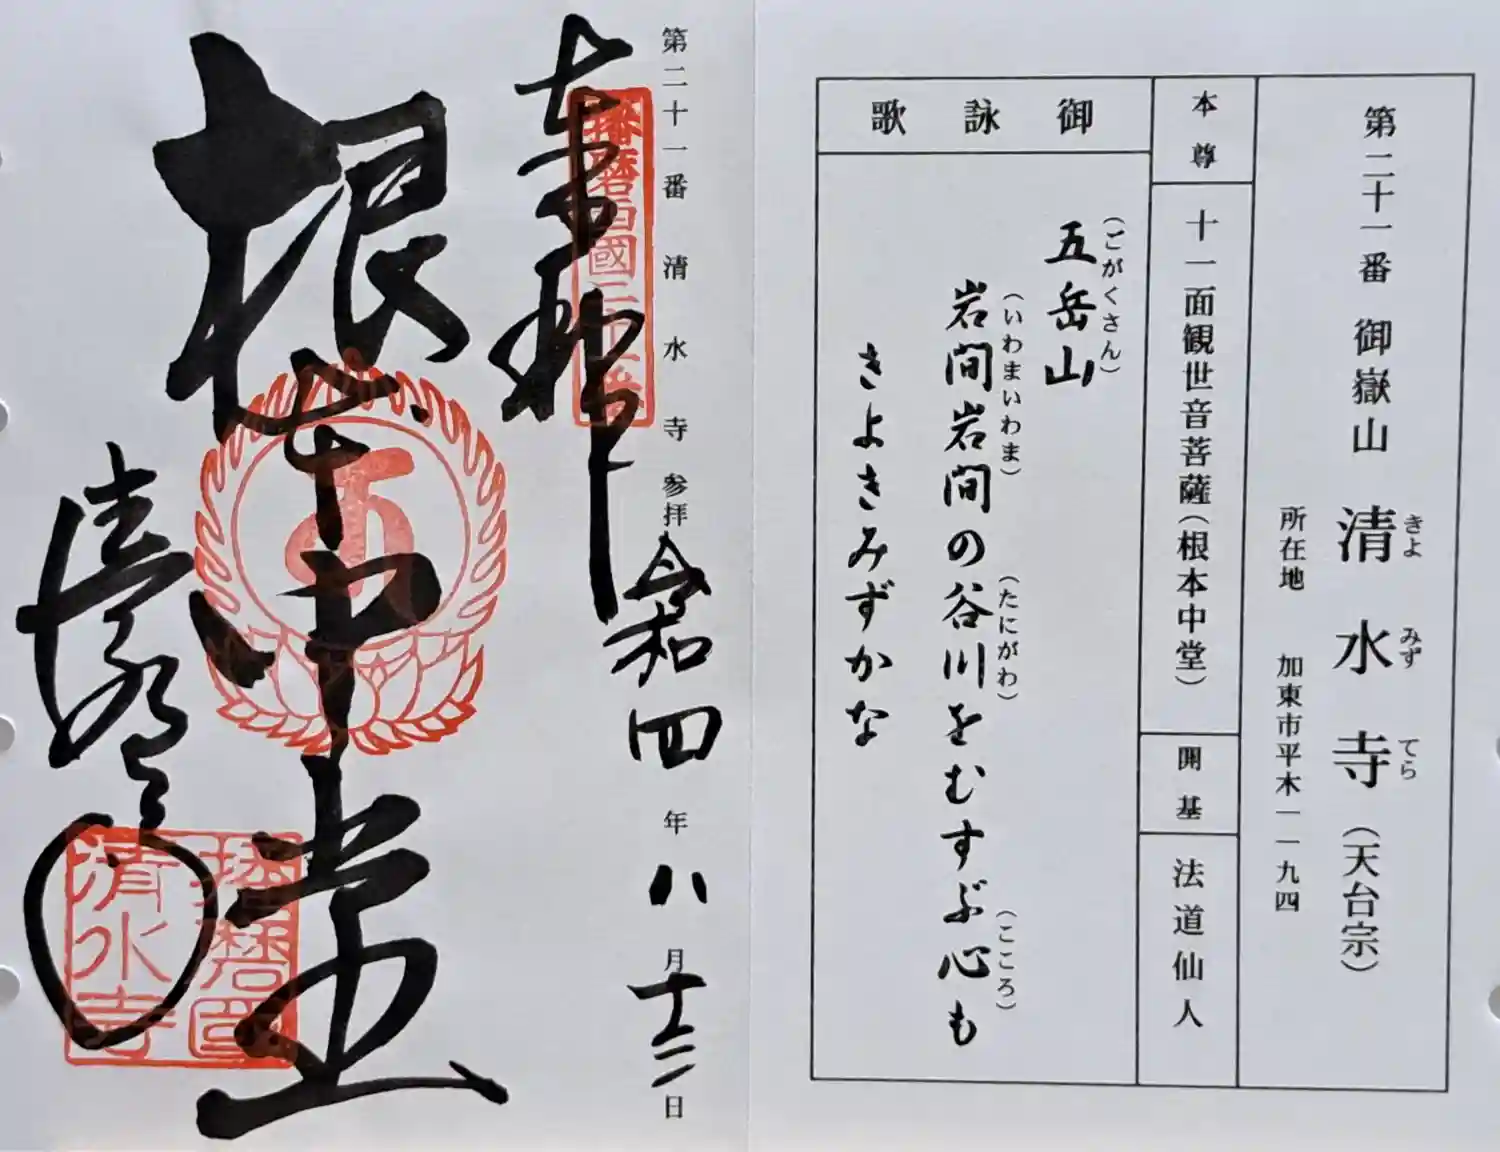 第二十一番 御嶽山 清水寺(天台宗)
きよ みず てら
所在地 加東市平木一一九四
本尊
十一面観世音菩薩(根本中堂)
開基
法道仙人
御詠歌
五岳山
(ごがくさん)
岩間岩間の谷川をむすぶ心も
(いわまいわま)
(たにがわ)
(こころ)
きよきみずかな
第二十一番 清水寺 参拝 令和四年八月十三日
奉拝
播磨西國二十一番
根本中堂
清水寺
播磨國
清水寺